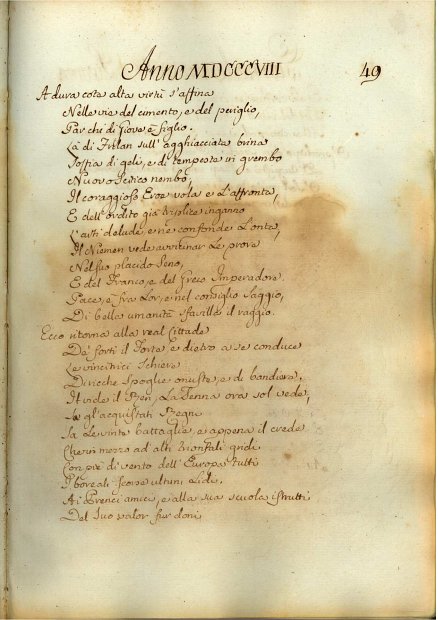 Anno MDCCCVIII 49
A dura cote alta virtù s'affina
Nelle vie del cimento, e del periglio,
Par chi di Giove è figlio.
Là di Frilan sull'agghiacciata brina
Soffia di geli, e di tempeste in grembo
Nuovo Scitico nembo,
Il coraggioso Eroe vola e l'affronta,
E dell'ordito già triplice inganno
L'arti delude, e ne confonde l'onta,
Il Niemen vede avvicinar le prore
Nel suo placido seno,
E del Franco, e del Greco Imperadore
Pace, è fra lor, e nel consiglio saggio,
Di bella umanità sfavilla il raggio.
Ecco ritorna alla real Cittade
De' forti il Forte e dietro a se conduce
Le vincitrici schiere
Di ricche spoglie onuste, e di bandiere.
Il vide il Ren, la Senna ora sol vede,
Sa gl'acquistati Regni
Sa le vinte battaglie, e appena il crede
Che in mezzo ad alti trionfali gridi
Con piè di vento dell'Europa tutti
I boreali scorse ultimi lidi.
Ai Prenci amici, e alla sua scuola istrutti
Del suo valor fur doni